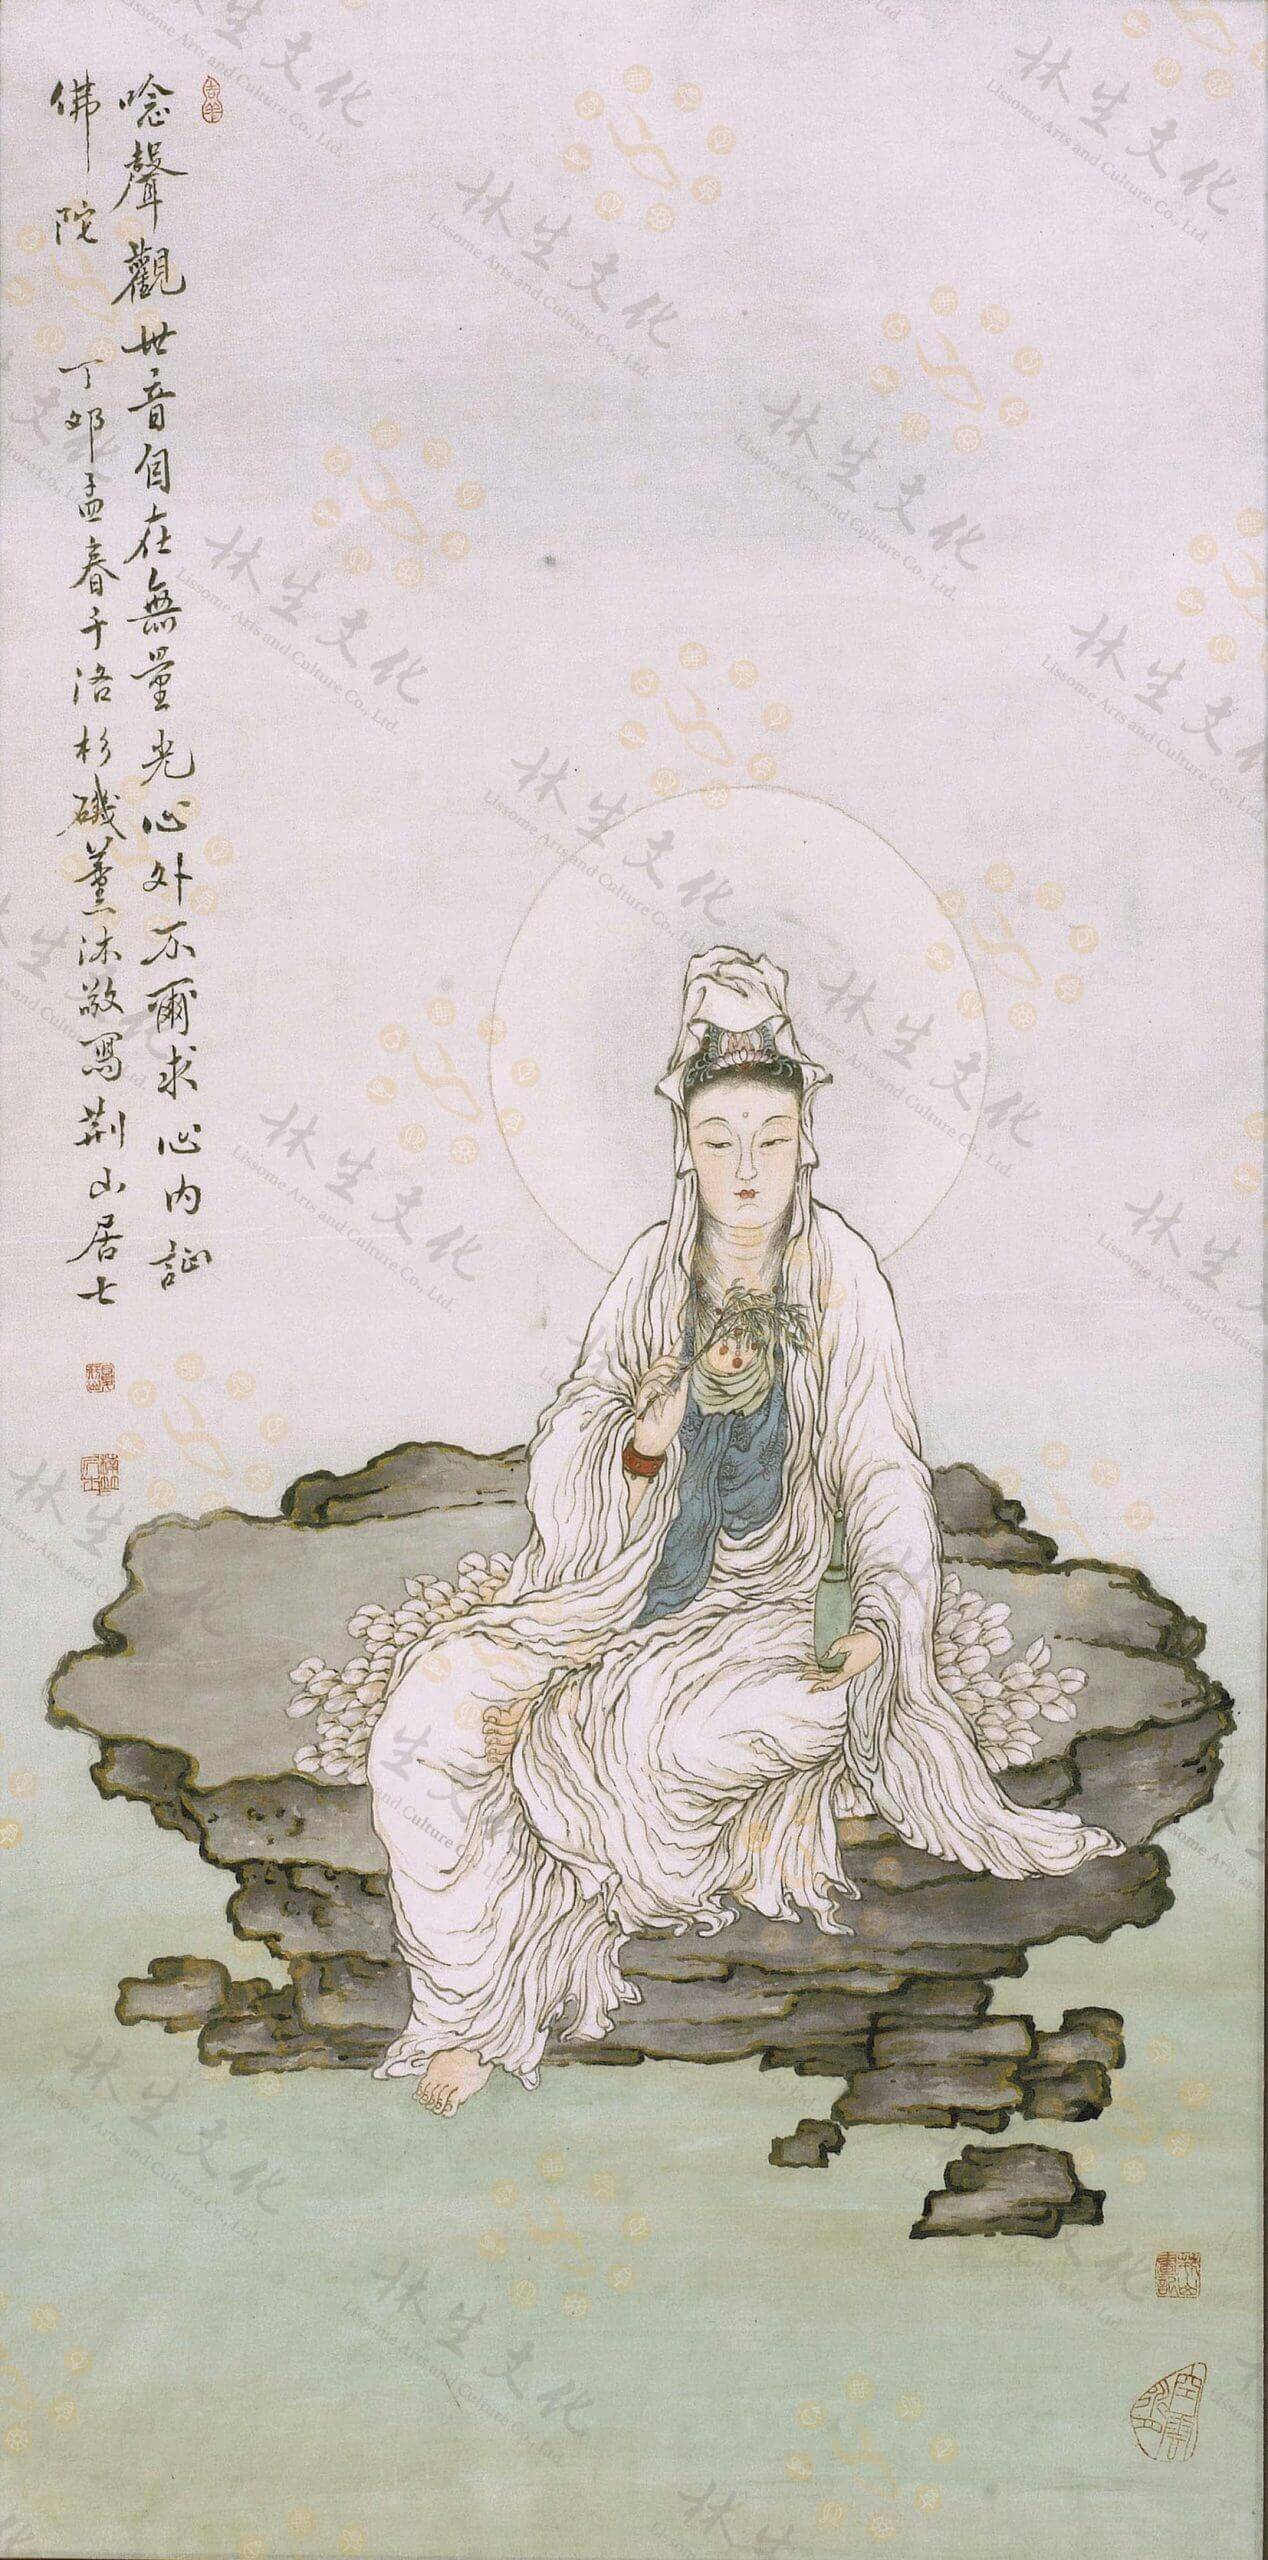 唸聲觀世音自在無量光心外不爾求心內証
佛陀
丁卯孟春于洛杉磯薰沐敬寫荆山居士
林生文化
Lissome Arts and Culture Co., Ltd.